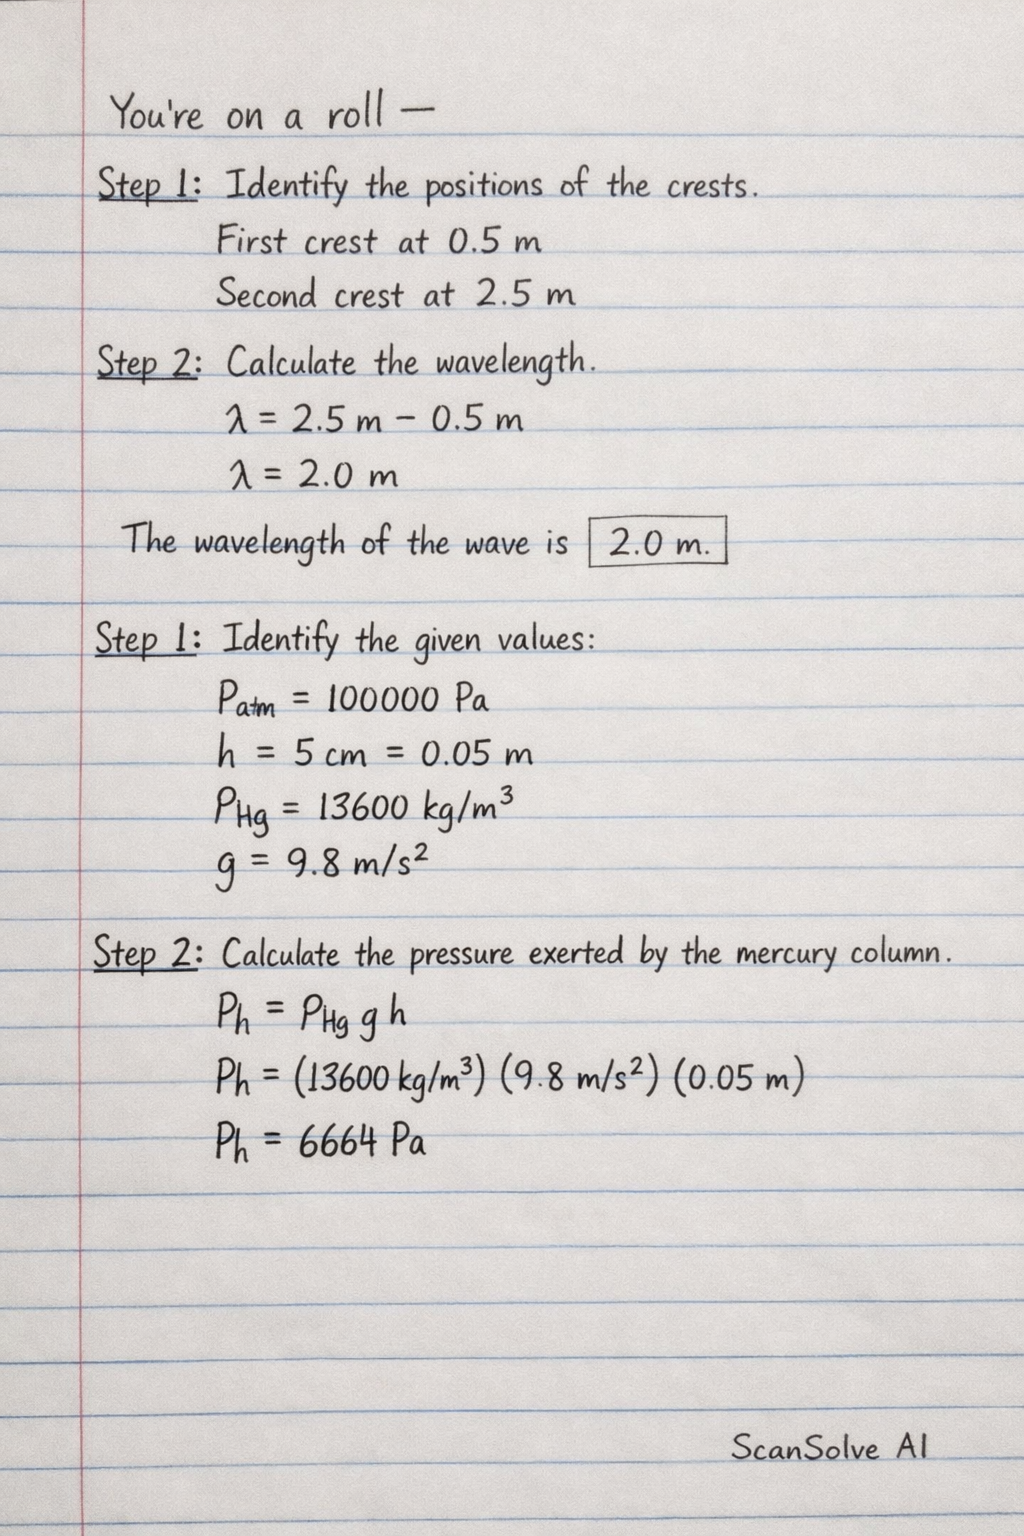 You're on a roll —
Step 1: Identify the positions of the crests.
First crest at 0.5 m
Second crest at 2.5 m
Step 2: Calculate the wavelength.
λ = 2.5 m − 0.5 m
λ = 2.0 m
The wavelength of the wave is 2.0 m.
Step 1: Identify the given values:
Patm = 100000 Pa
h = 5 cm = 0.05 m
PHg = 13600 kg/m³
g = 9.8 m/s²
Step 2: Calculate the pressure exerted by the mercury column.
Ph = PHg g h
Ph = (13600 kg/m³) (9.8 m/s²) (0.05 m)
Ph = 6664 Pa
ScanSolve AI